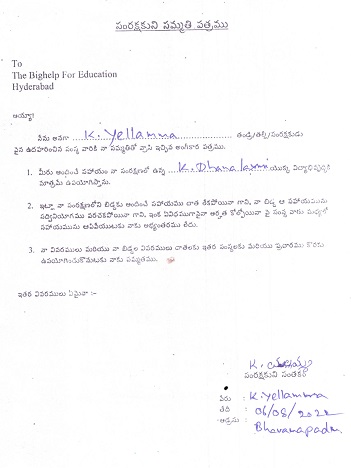 సంరక్షకుని సమ్మతి పత్రము
To
The Bighelp For Education
Hyderabad
అయ్యా!
నేను అనగా K. Yellamma తండ్రి/తల్లి/సంరక్షకుడు
పైన ఉదహరించిన సంస్థ వారికి నా సమ్మతితో వ్రాసి ఇచ్చిన అంగీకార పత్రము.
1. మీరు అందించే సహాయం నా సంరక్షణలో ఉన్న K. Dhana laxmi యొక్క విద్యాభివృద్ధికి
మాత్రమే ఉపయోగిస్తాను.
2. ఇట్లా నా సంరక్షణలోని బిడ్డకు అందించే సహాయము చాలా లేకపోయినా గాని, నా బిడ్డ ఆ సహాయమును
సద్వినియోగము పరచకపోయినా గాని, ఇంక ఏవిధముగానైనా అర్హత కోల్పోయినా పై సంస్థ వారు మధ్యలో
సహాయమును ఆపివేయుటకు నాకు అభ్యంతరము లేదు.
3. నా వివరములు మరియు నా బిడ్డల వివరములు దాతలకు ఇతర సంస్థలకు మరియు ప్రచారము కొరకు
ఉపయోగించుకొనుటకు నాకు సమ్మతము.
ఇతర వివరములు ఏమైనా :-
K.
సంరక్షకుని సంతకం
పేరు : K. Yellamma
తేది : 06/08/2022
అడ్రసు : Bhavanapadu